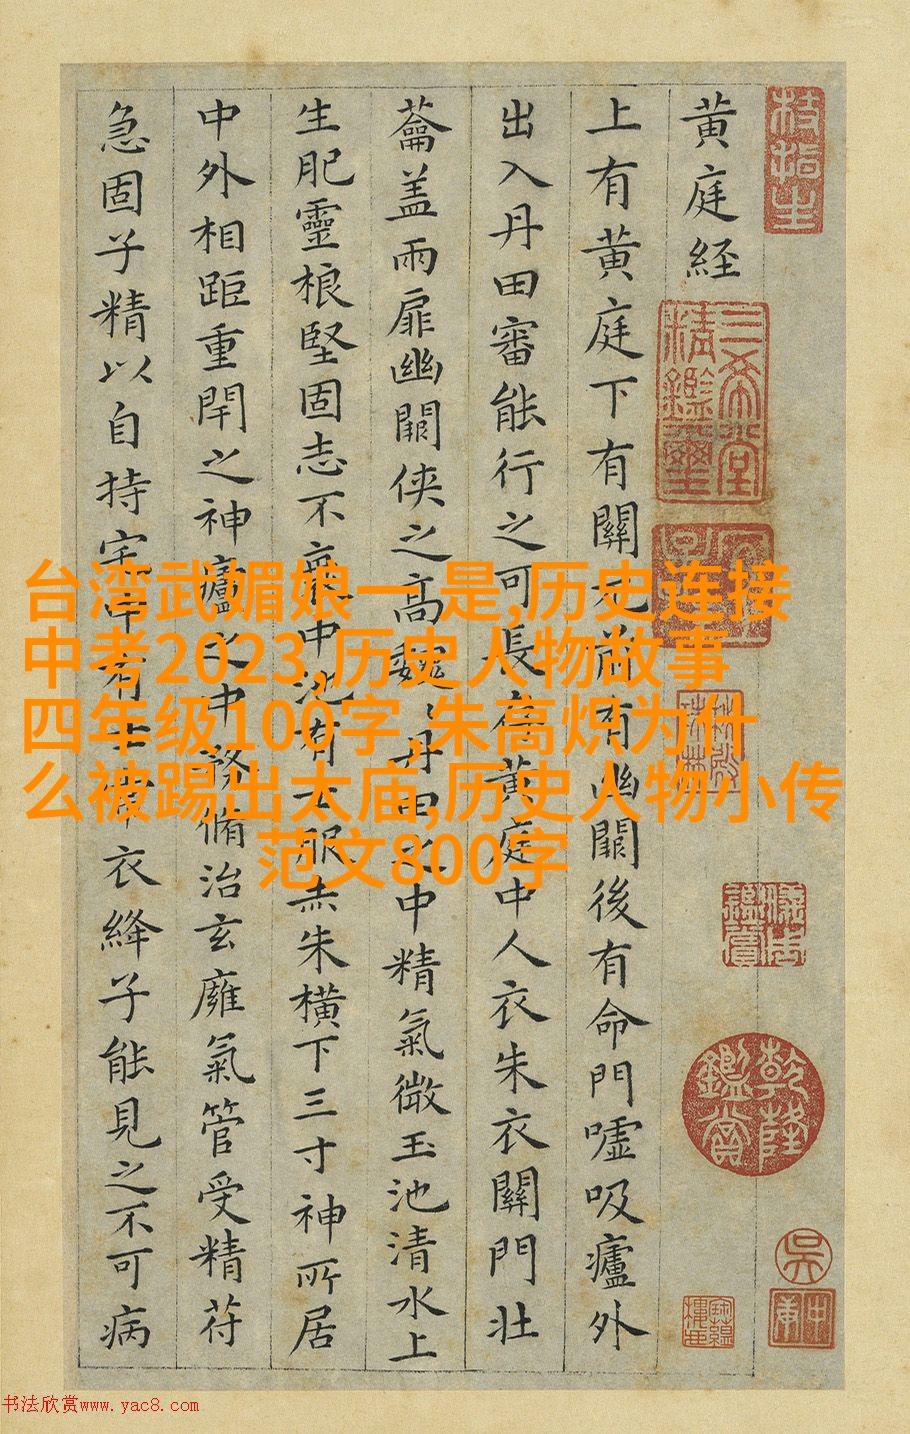 黃庭経
上有黃庭下有關元前有幽闕後有命門嘘吸廬外
出入丹田審能行之可長存黃庭中人衣朱衣關門壯
蘥盖兩扉幽闕俠之高巍〻丹田之中精氣微玉池清水上
生肥靈根堅固志不衰中池有士服赤朱橫下三寸神所居
中外相距重閇之神廬之中務脩治玄廱氣管受精苻
急固子精以自持宅中有士常衣絳子能見之不可病
三希堂精鑑璽
乾隆鑑賞
吳
台湾武媚娘一 是,历史连接
中考2023,历史人物故事
四年级100字,朱高炽为什
么被踢出太庙,历史人物小传
范文800字
书法欣赏www.yac8.com